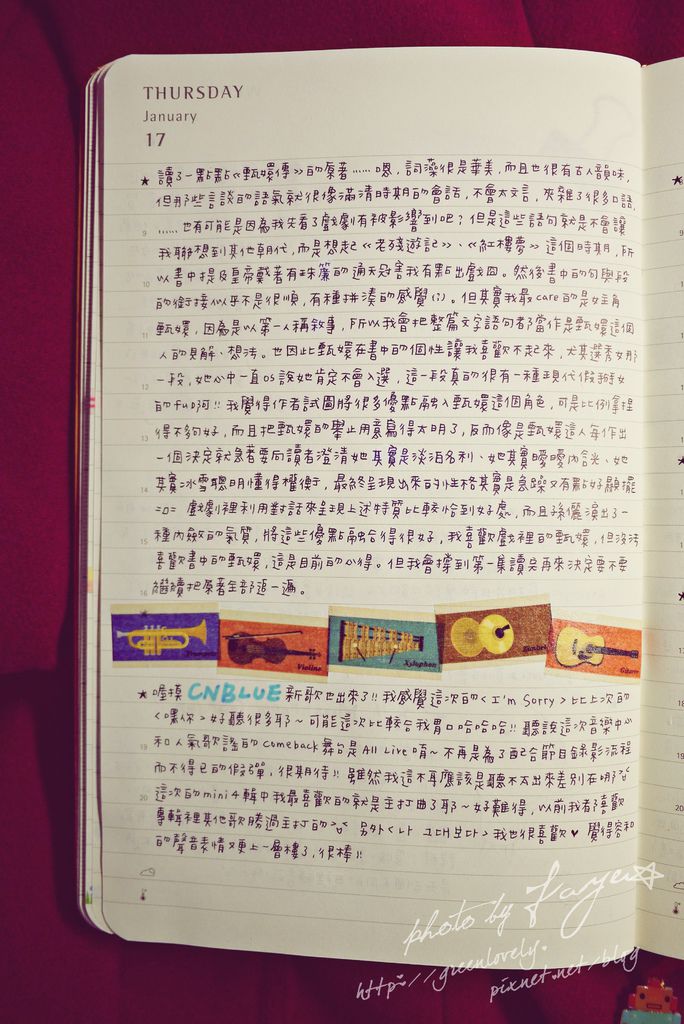 THURSDAY
January
17
★ 讀了一點點≪甄嬛傳≫的原著……嗯，詞藻很是華美，而且也很有古人韻味，
但那些言談的語氣就很像滿清時期的會話，不會太文言，夾雜了很多口語，
……也有可能是因為我先看了戲劇有被影響到吧？但是這些語句就是不會讓
9
我聯想到其他朝代，而是想起≪老殘遊記≫、≪紅樓夢≫這個時期，所
以書中提及皇帝戴著有珠簾的通天冠害我有點出戲囧。然後書中的句與段
10
的銜接似乎不是很順，有種拼湊的感覺(;)。但其實我最care的是女主角
甄嬛，因為是以第一人稱敘事，所以我會把整篇文字語句都當作是甄嬛這個
11
人的見解、想法。也因此甄嬛在書中的個性讓我喜歡不起來，尤其選秀女那
一段，她心中一直OS說她肯定不會入選，這一段真的很有一種現代假掰女
12
的fu阿!! 我覺得作者試圖將很多優點融入甄嬛這個角色，可是比例拿捏
得不夠好，而且把甄嬛的舉止用意寫得太明了，反而像是甄嬛這人每作出
13
一個決定就急著要向讀者澄清她其實是淡泊名利、她其實曖曖內含光、她
其實冰雪聰明懂得權衡，最終呈現出來的性格其實是急躁又有點好顯擺
14
=□= 戲劇裡利用對話來呈現上述特質比較恰到好處，而且孫儷演出了一
種內斂的氣質，將這些優點融合得很好，我喜歡戲裡的甄嬛，但沒法
15
喜歡書中的甄嬛，這是目前的心得。但我會撐到第一集讀完再來決定要不要
繼續把原著全部追一遍。
16
Trumpet
Violine
Xylophon
Zimbel
Gitarre
★ 喔摸 CNBLUE 新歌也出來了!! 我感覺這次的<I'm Sorry>比上次的
<嘿你>好聽很多耶~可能這次比較合我胃口哈哈哈!! 聽說這次音樂中心
和人氣歌謠的comeback舞台是All Live唷~不再是為了配合節目錄影流程
19
而不得已的假彈，很期待!! 雖然我這木耳應該是聽不太出來差別在哪
這次的mini 4輯中我最喜歡的就是主打曲了耶~好難得，以前我都喜歡
20
專輯裡其他歌勝過主打的 另外<나 그대보다>我也很喜歡♥ 覺得容和
的聲音表情又更上一層樓了，很棒!!
photo by Faye☆
http://greenlovely.
pixnet.net/blog